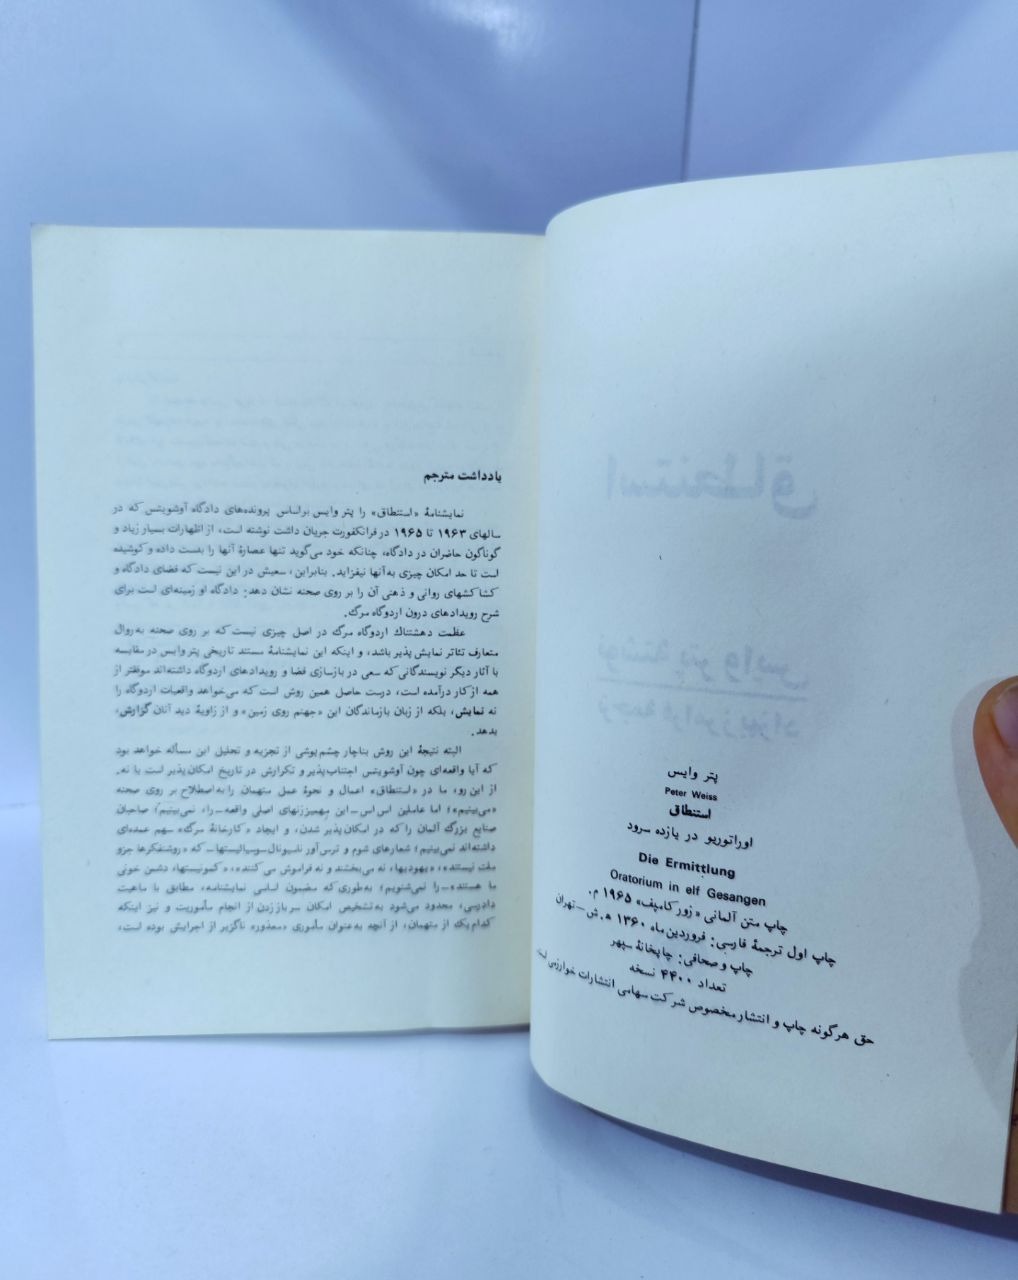 پتر وایس
Peter Weiss
استنطاق
اوراتوریو در یازده سرود
Die Ermittlung
Oratorium in elf Gesangen
چاپ متن آلمانی «زورکامپف» ۱۹۶۵ م.
چاپ اول ترجمهٔ فارسی: فروردین ماه ۱۳۶۰ ه. ش ـ تهران
چاپ و صحافی: چاپخانهٔ سپهر
تعداد ۴۴۰۰ نسخه
حق هرگونه چاپ و انتشار مخصوص شرکت سهامی انتشارات خوارزمی است
یادداشت مترجم
نمایشنامهٔ «استنطاق» را پتر وایس براساس پرونده‌های دادگاه آوشویتس که در
سالهای ۱۹۶۳ تا ۱۹۶۵ در فرانکفورت جریان داشت نوشته است، از اظهارات بسیار زیاد و
گوناگون حاضران در دادگاه، چنانکه خود می‌گوید تنها عصارهٔ آنها را بدست داده و کوشیده
است تا حد امکان چیزی به آنها نیفزاید. بنابراین، سعیش در این نیست که فضای دادگاه و
کشاکشهای روانی و ذهنی آن را بر روی صحنه نشان دهد: دادگاه او زمینه‌ای است برای
شرح رویدادهای درون اردوگاه مرگ.
عظمت دهشتناك اردوگاه مرگ در اصل چیزی نیست که بر روی صحنه به‌روال
متعارف تئاتر نمایش پذیر باشد، و اینکه این نمایشنامهٔ مستند تاریخی پتر وایس در مقایسه
با آثار دیگر نویسندگانی که سعی در بازسازی فضا و رویدادهای اردوگاه داشته‌اند موفقتر از
همه از کار درآمده است، درست حاصل همین روش است که می‌خواهد واقعیات اردوگاه را
نه نمایش، بلکه از زبان بازماندگان این «جهنم روی زمین» و از زاویهٔ دید آنان گزارش،
بدهد.
البته نتیجهٔ این روش بناچار چشم‌پوشی از تجزیه و تحلیل این مسأله خواهد بود
که آیا واقعه‌ای چون آوشویتس اجتناب‌پذیر و تکرارش در تاریخ امکان پذیر است یا نه.
از این رو، ما در «استنطاق» اعمال و نحوهٔ عمل متهمان را به‌اصطلاح بر روی صحنه
«می‌بینیم»؛ اما عاملین اس‌اس ـ این مهمیززنهای اصلی واقعه ـ را، نمی‌بینیم؛ صاحبان
صنایع بزرگ آلمان را که در امکان پذیر شدن، و ایجاد «کارخانهٔ مرگ» سهم عمده‌ای
داشته‌اند نمی‌بینیم؛ شعارهای شوم و ترس‌آور ناسیونال ـ سوسیالیستها ـ که «روشنفکرها جزو
ملت نیستند»، «یهودیها، نه می‌بخشند و نه فراموش می کنند»، «کمونیستها، دشمن خونی
ما هستند» ـ را نمی‌شنویم؛ به‌طوری‌که مضمون اساسی نمایشنامه، مطابق با ماهیت
دادرسی، محدود می‌شود به‌تشخیص امکان سر باز زدن از انجام مأموریت و نیز اینکه
کدام یك از متهمان، از آنچه به‌عنوان مأموری «معذور» ناگزیر از اجرایش بوده است،